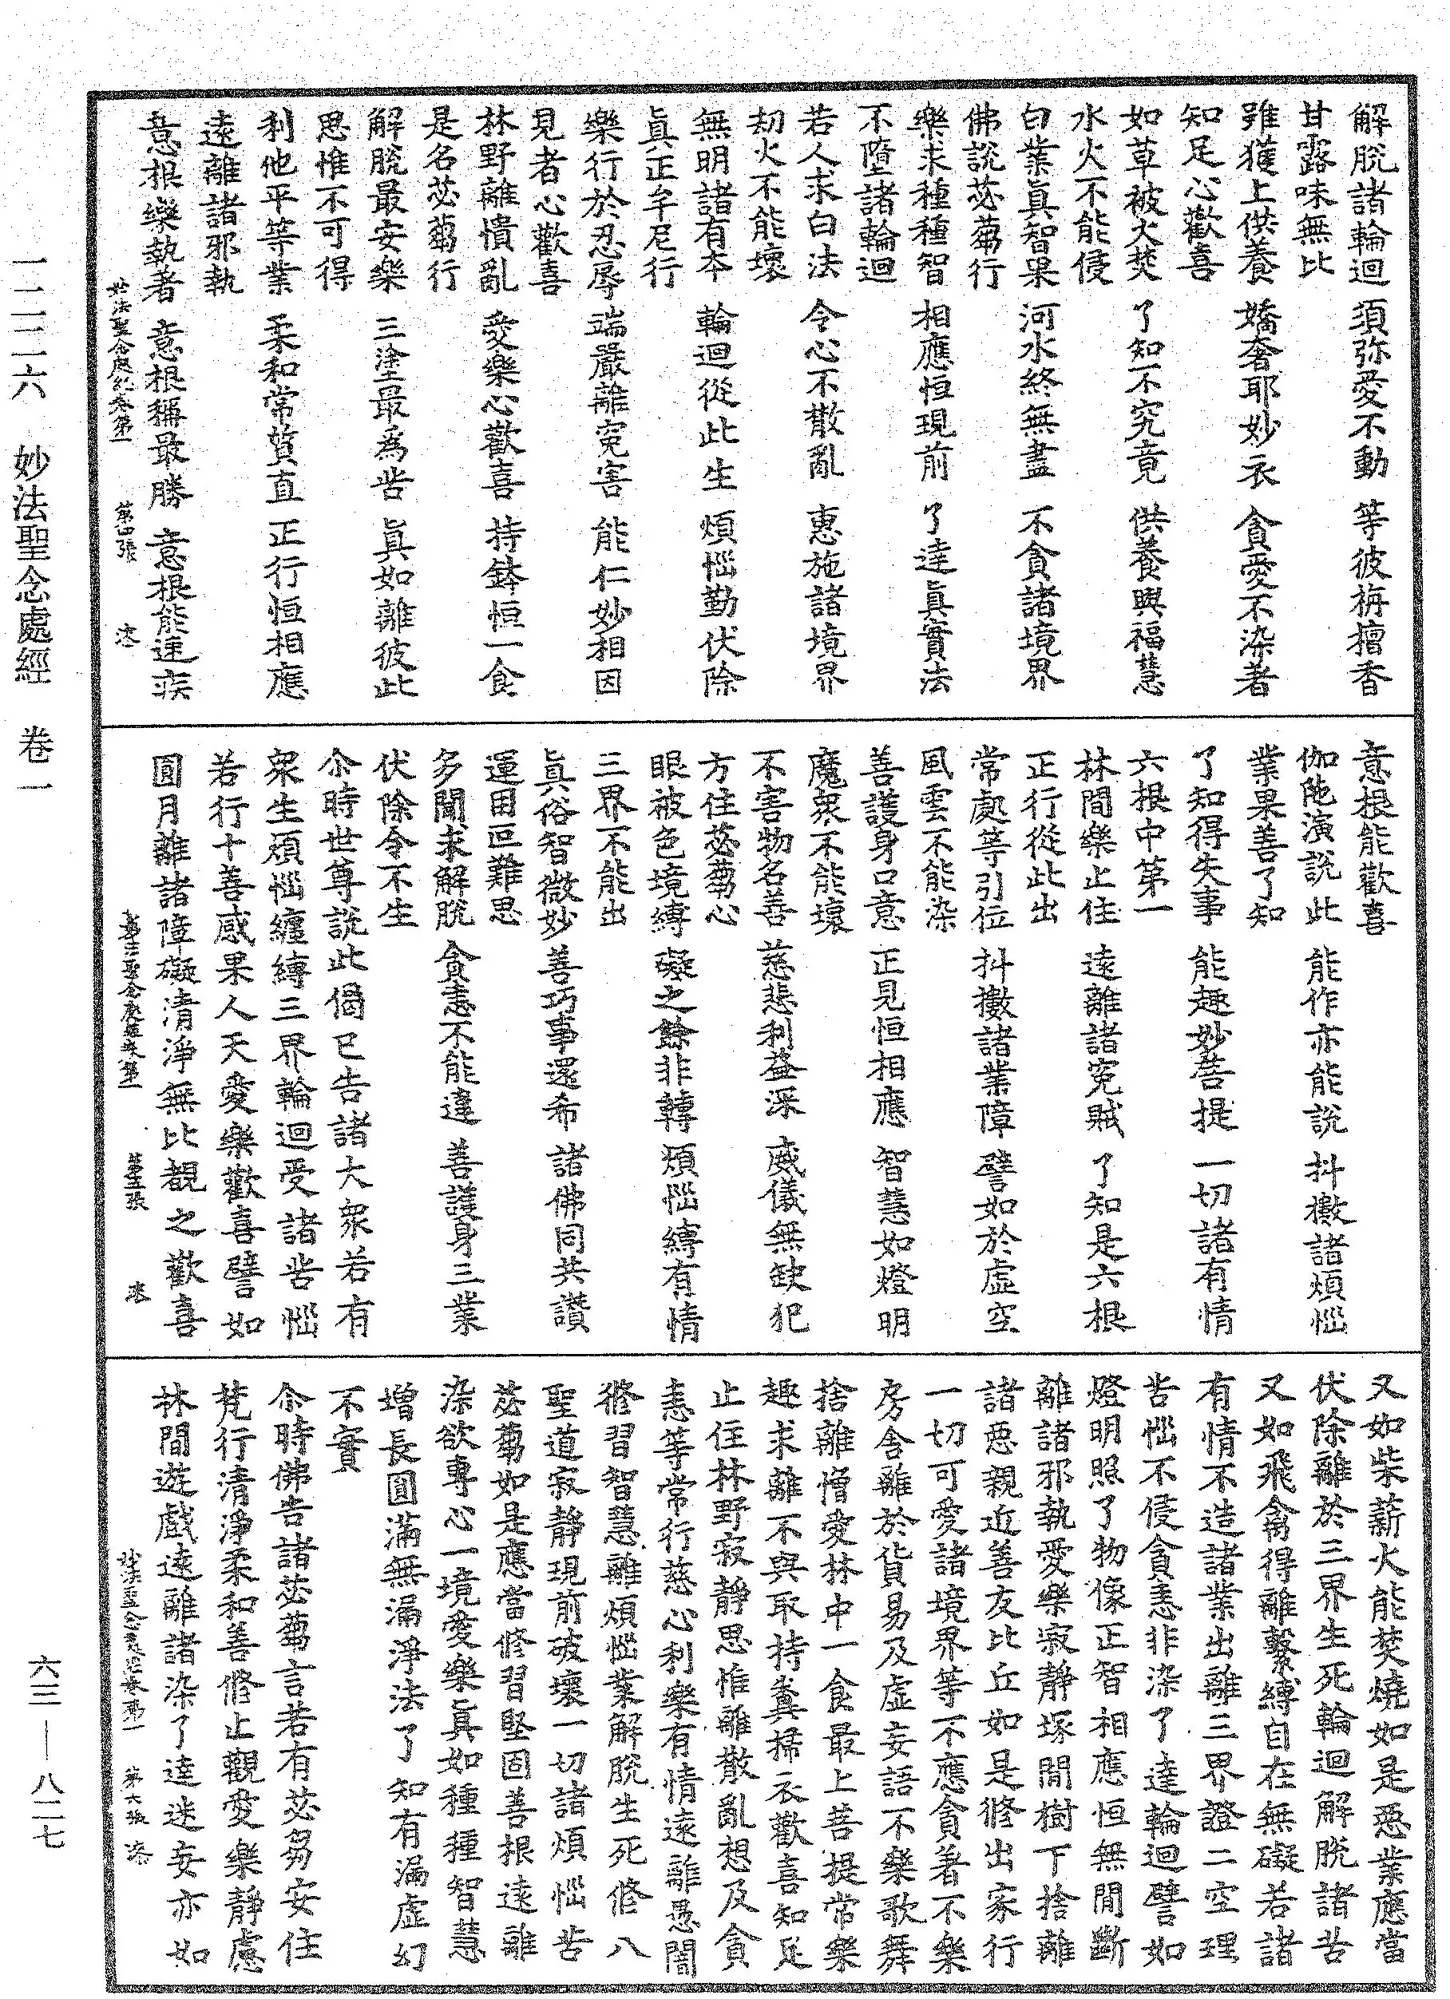 解脫諸輪迴　須弥愛不動　等彼栴檀香
甘露味無比
雖獲上供養　嬌奢耶妙衣　貪愛不染著
知足心歡喜
如草被火焚　了知不究竟　供養興福慧
水火不能侵
白業真智果　河水終無盡　不貪諸境界
佛說苾蒭行
樂求種種智　相應恒現前　了達真實法
不墮諸輪迴
若人求白法　令心不散亂　惠施諸境界
劫火不能壞
無明諸有本　輪迴從此生　煩惱勤伏除
真正牟尼行
樂行於忍辱　端嚴離冤害　能仁妙相因
見者心歡喜
林野離憒亂　愛樂心歡喜　持鉢恒一食
是名苾蒭行
解脫最安樂　三塗最為苦　真如離彼此
思惟不可得
利他平等業　柔和常質直　正行恒相應
遠離諸邪執
意根樂執著　意根稱最勝　意根能速疾
妙法聖念處經卷第一　第四張
意根能歡喜
伽陁演說此　能作亦能說　抖擻諸煩惱
業果善了知
了知得失事　能趣妙菩提　一切諸有情
六根中第一
林間樂止住　遠離諸冤賊　了知是六根
正行從此出
常處等引位　抖擻諸業障　譬如於虛空
風雲不能染
善護身口意　正見恒相應　智慧如燈明
魔眾不能壞
不害物名善　慈悲利益深　威儀無缺犯
方住苾蒭心
眼被色境縛　礙之餘非轉　煩惱縛有情
三界不能出
真俗智微妙　善巧事還希　諸佛同共讚
運用叵難思
多聞求解脫　貪恚不能違　善護身三業
伏除令不生
尒時世尊說此偈已告諸大眾若有
眾生煩惱纏縛三界輪迴受諸苦惱
若行十善感果人天愛樂歡喜譬如
圓月離諸障礙清淨無比覩之歡喜
妙法聖念處經卷第一　第五張
又如柴薪火能焚燒如是惡業應當
伏除離於三界生死輪迴解脫諸苦
又如飛禽得離繫縛自在無礙若諸
有情不造諸業出離三界證二空理
苦惱不侵貪恚非染了達輪迴譬如
燈明照了物像正智相應恒無間斷
離諸邪執愛樂寂靜塚間樹下捨離
諸惡親近善友比丘如是修出家行
一切可愛諸境界等不應貪著不樂
房舍離於貨易及虛妄語不樂歌舞
捨離憎愛林中一食最上菩提常樂
趣求離不與取持糞掃衣歡喜知足
止住林野寂靜思惟離散亂想及貪
恚等常行慈心利樂有情遠離愚闇
修習智慧離煩惱業解脫生死修八
聖道寂靜現前破壞一切諸煩惱苦
苾蒭如是應當修習堅固善根遠離
染欲專心一境愛樂真如種種智慧
增長圓滿無漏淨法了知有漏虛幻
不實
尒時佛告諸苾蒭言若有苾芻安住
梵行清淨柔和善修止觀愛樂靜慮
林間遊戲遠離諸染了達迷妄亦如
妙法聖念處經卷第一　第六張
一二二六　妙法聖念處經　卷一
六三—八二七